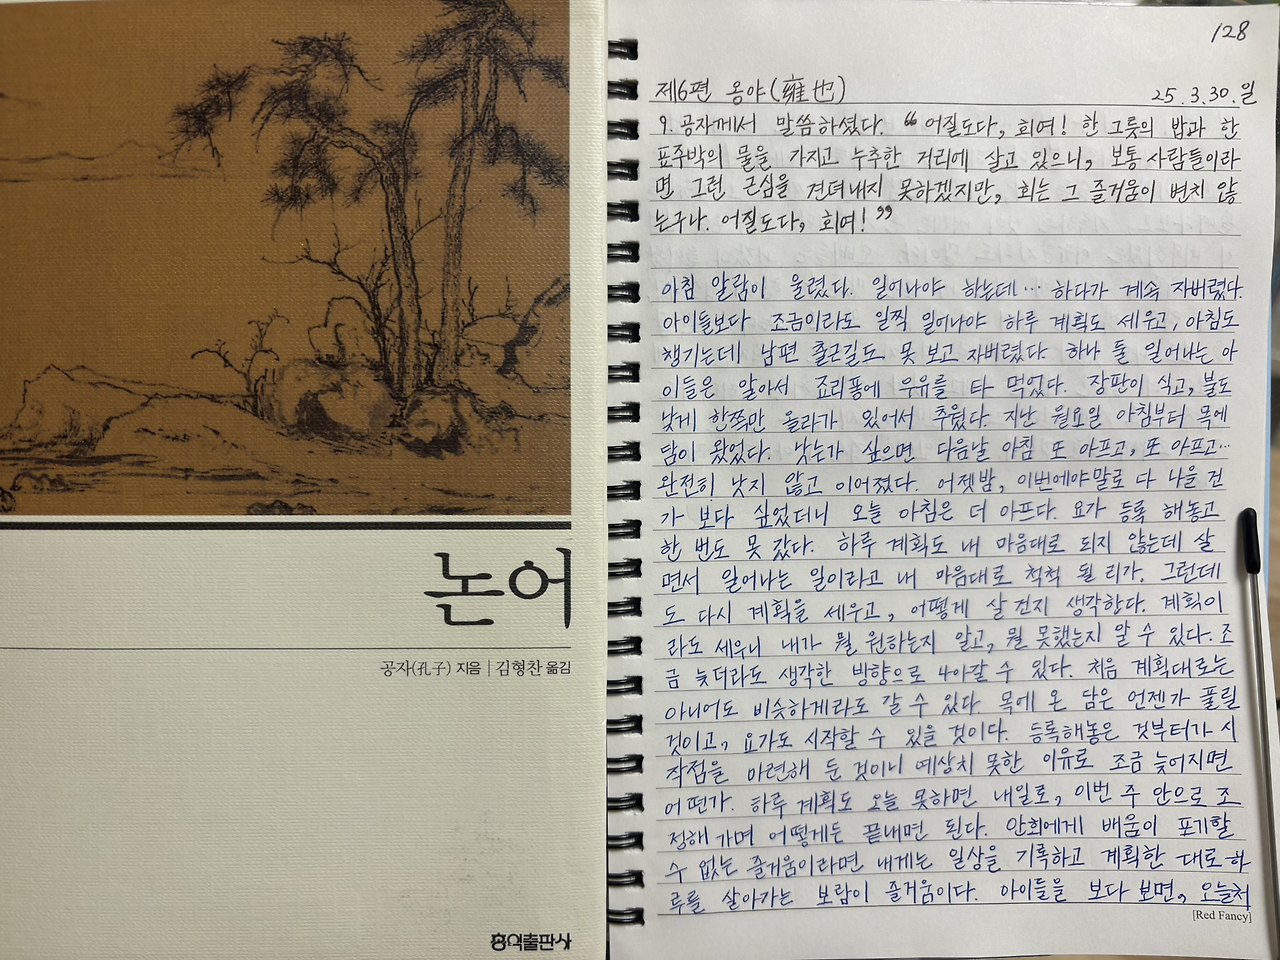 논어
공자(孔子) 지음 | 김형찬 옮김
홍익출판사
128
제6편 옹야(雍也) 25.3.30.일
9. 공자께서 말씀하셨다. “어질도다, 회여! 한 그릇의 밥과 한
표주박의 물을 가지고 누추한 거리에 살고 있으니, 보통 사람들이라
면 그런 근심을 견뎌내지 못하겠지만, 회는 그 즐거움이 변치 않
는구나. 어질도다, 회여!”
아침 알람이 울렸다. 일어나야 하는데… 하다가 계속 자버렸다.
아이들보다 조금이라도 일찍 일어나야 하루 계획도 세우고, 아침도
챙기는데 남편 출근길도 못 보고 자버렸다. 하나 둘 일어나는 아
이들은 알아서 죠리퐁에 우유를 타 먹었다. 장판이 식고, 불도
낮게 한쪽만 올라가 있어서 추웠다. 지난 월요일 아침부터 목에
담이 왔었다. 낫는가 싶으면 다음날 아침 또 아프고, 또 아프고…
완전히 낫지 않고 이어졌다. 어젯밤, 이번에야말로 다 나을 건
가 보다 싶었더니 오늘 아침은 더 아프다. 요가 등록 해놓고
한 번도 못 갔다. 하루 계획도 내 마음대로 되지 않는데 살
면서 일어나는 일이라고 내 마음대로 척척 될 리가. 그런데
도 다시 계획을 세우고, 어떻게 살 건지 생각한다. 계획이
라도 세우니 내가 뭘 원하는지 알고, 뭘 못했는지 알 수 있다. 조
금 늦더라도 생각한 방향으로 나아갈 수 있다. 처음 계획대로는
아니어도 비슷하게라도 갈 수 있다. 목에 온 담은 언젠가 풀릴
것이고, 요가도 시작할 수 있을 것이다. 등록해놓은 것부터가 시
작점을 마련해 둔 것이니 예상치 못한 이유로 조금 늦어지면
어떤가. 하루 계획도 오늘 못하면 내일로, 이번 주 안으로 조
정해 가며 어떻게든 끝내면 된다. 안회에게 배움이 포기할
수 없는 즐거움이라면 내게는 일상을 기록하고 계획한 대로 하
루를 살아가는 보람이 즐거움이다. 아이들을 보다 보면, 오늘처
[Red Fancy]